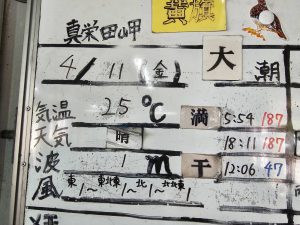 黄旗
真栄田岬
4/11(金) 大潮
気温 25℃ 満 5:54 187
天気 晴 18:11 187
波 1m 干 12:06 47
風 東1~東北東1~北1~北北東1